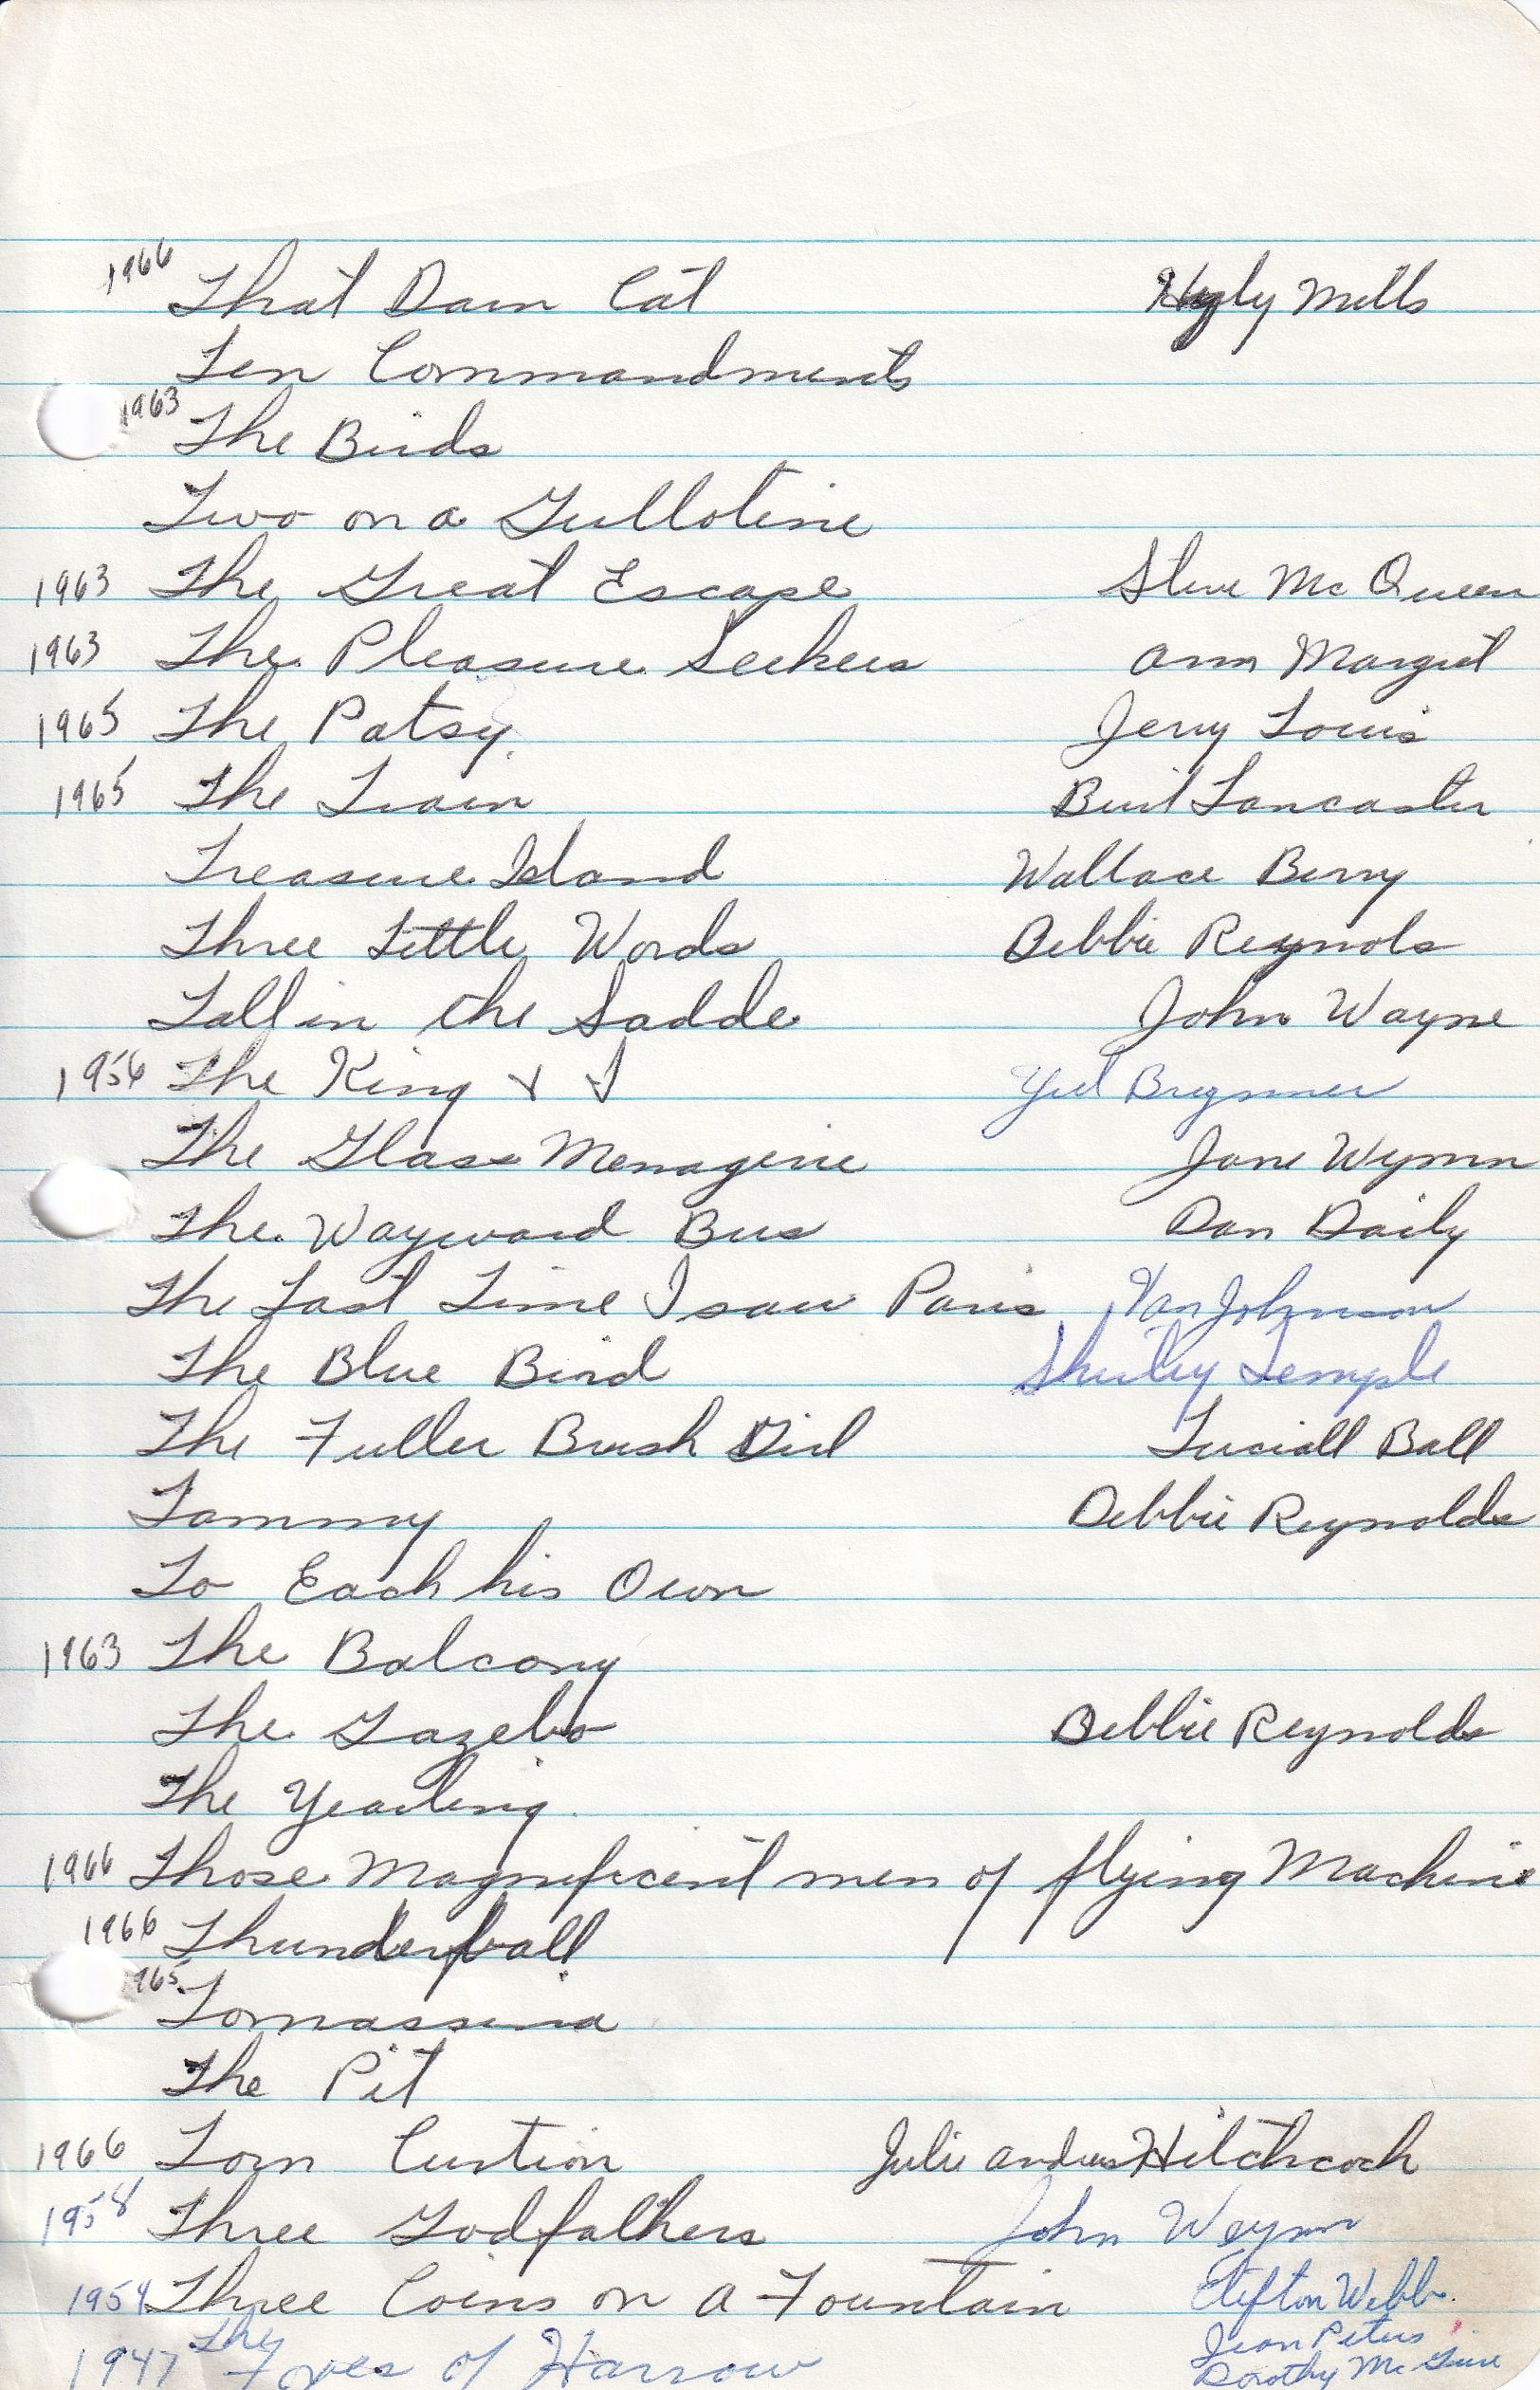 1966 That Darn Cat Hayly Mills
Ten Commandments
1963 The Birds
Two on a Gullotine
1963 The Great Escape Steve Mc Queen
1963 The Pleasure Seekers Ann Margret
1965 The Patsy Jerry Louis
1965 The Train Burt Lancaster
Treasure Island Wallace Berry
Three Little Words Debbie Reynols
Tall in the Sadde John Wayne
1956 The King & I Yul Brynner
The Glass Menagerie Jane Wymn
The Wayward Bus Dan Daily
The Last Time I saw Paris Van Johnson
The Blue Bird Shirley Temple
The Fuller Brush Girl Luciall Ball
Tammy Debbie Reynolds
To Each his Own
1963 The Balcony
The Gazebo Debbie Reynolds
The Yearling
1966 Those Magnificent men of flying Machine
1966 Thunderball
1965 Tomassina
The Pit
1966 Torn Curtion Julie Andrews Hitchcock
1958 Three Godfathers John Weyn
1954 Three Coins on a Fountain Clifton Webb
Jean Peters
1947 The Foxes of Harrow Dorothy McGuire